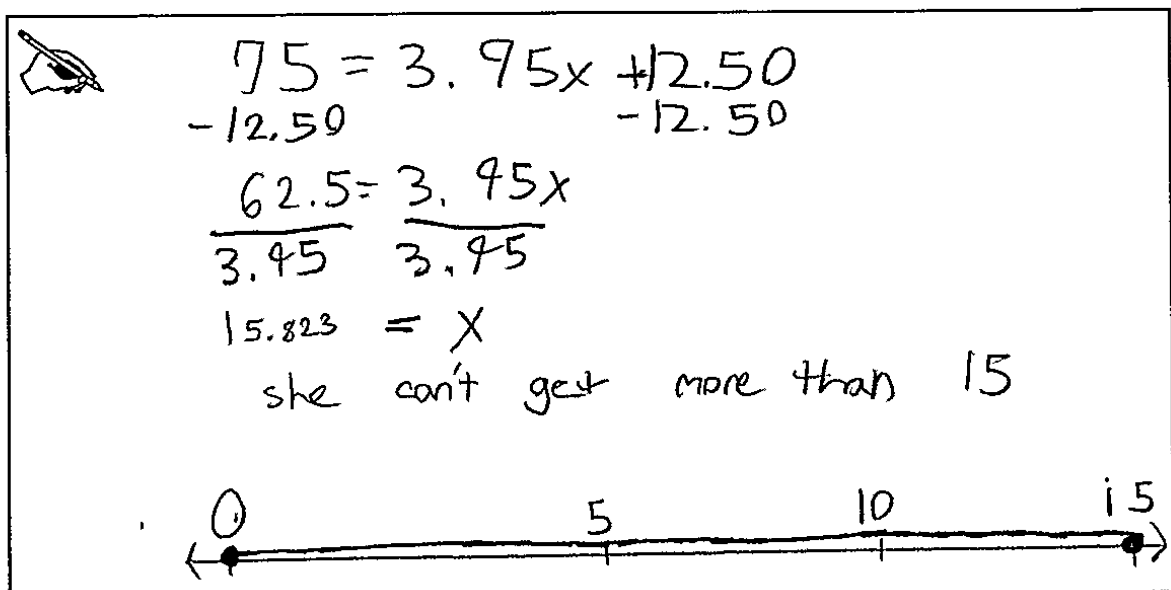 75 = 3.95x +12.50
-12.50 -12.50
62.5 = 3.95x
3.95 3.95
15.823 = x
she can't get more than 15
0 5 10 15